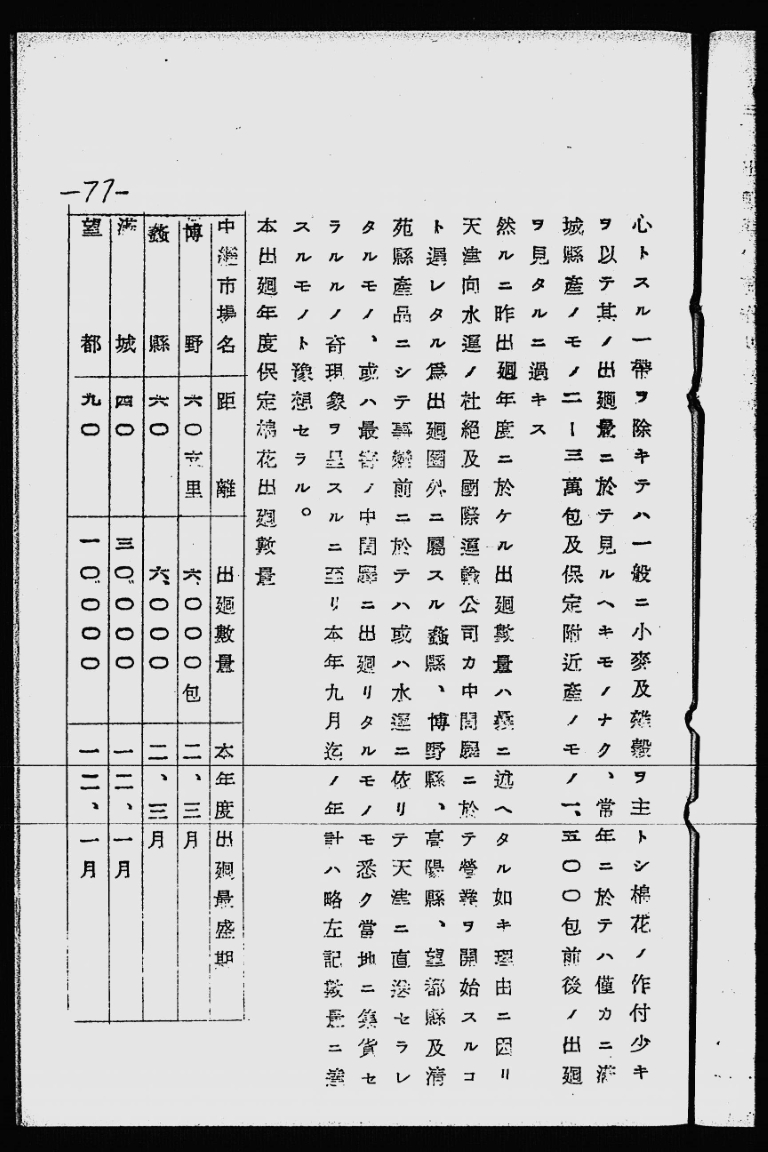 心トスル一帶ヲ除キテハ一般ニ小麥及雜穀ヲ主トシ棉花ノ作付少キ
ヲ以テ其ノ出廻量ニ於テ見ルヘキモノナク、常年ニ於テハ僅カニ滿
城縣產ノモノ二ー三萬包及保定附近產ノモノ一、五〇〇包前後ノ出廻
ヲ見タルニ過キス
然ルニ昨出廻年度ニ於ケル出廻數量ハ曩ニ述ヘタル如キ理由ニ因リ
天津向水運ノ杜絕及國際運輸公司カ中間驛ニ於テ營業ヲ開始スルコ
ト遲レタル爲出廻圈外ニ屬スル蠡縣、博野縣、高陽縣、望都縣及淸
苑縣產品ニシテ事變前ニ於テハ或ハ水運ニ依リテ天津ニ直送セラレ
タルモノ、或ハ最寄ノ中間驛ニ出廻リタルモノモ悉ク當地ニ集貨セ
ラルルノ奇現象ヲ呈スルニ至リ本年九月迄ノ年計ハ略左記數量ニ達
スルモノト豫想セラル。
本出廻年度保定棉花出廻數量
中繼市場名 距離 出廻數量 本年度出廻最盛期
博野 六〇支里 六、〇〇〇包 二、三月
蠡縣 六〇 六、〇〇〇 二、三月
滿城 四〇 三〇、〇〇〇 一二、一月
望都 九〇 一〇、〇〇〇 一二、一月
-77-